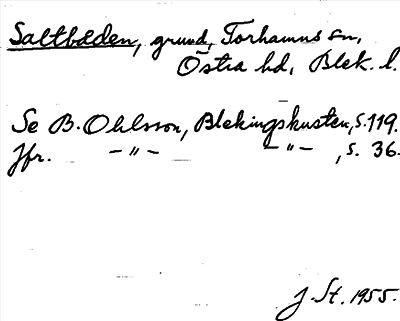 Saltbåden, grund, Torhamns sn,
Östra hd, Blek. l.
Se B. Ohlsson, Blekingskusten, s. 119.
Jfr. –"– –"–, s. 36.
J. St. 1955.